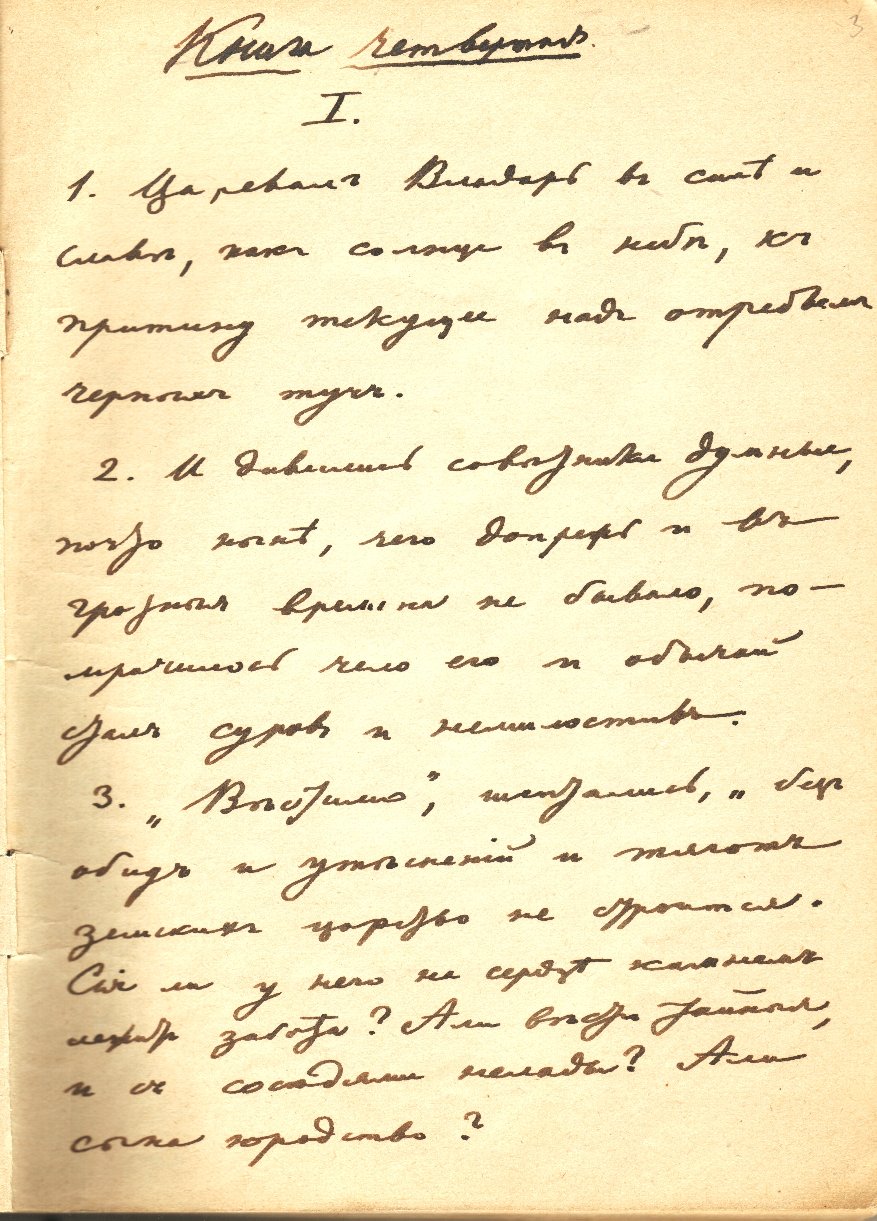 3
Книга четвертая.
I.
1. Царевалъ Владарь въ силѣ и
славѣ, какъ солнце въ небѣ, къ
притину текуще надъ отребьемъ
черныхъ тучъ.
2. И дивились совѣтники думные,
почто нынѣ, чего допрежь и въ
грозныя времена не бывало, по-
мрачилось чело его и обычай
сталъ суровъ и немилостивъ.
3. „Вѣстимо”, шептались, „безъ
обидъ и утѣсненій и тяготъ
земскихъ царство не строится.
Сіи ли у него на сердцѣ камнемъ
лежатъ заботы? Али вѣсти тайныя,
и съ сосѣдями нелады? Али
сына юродство?